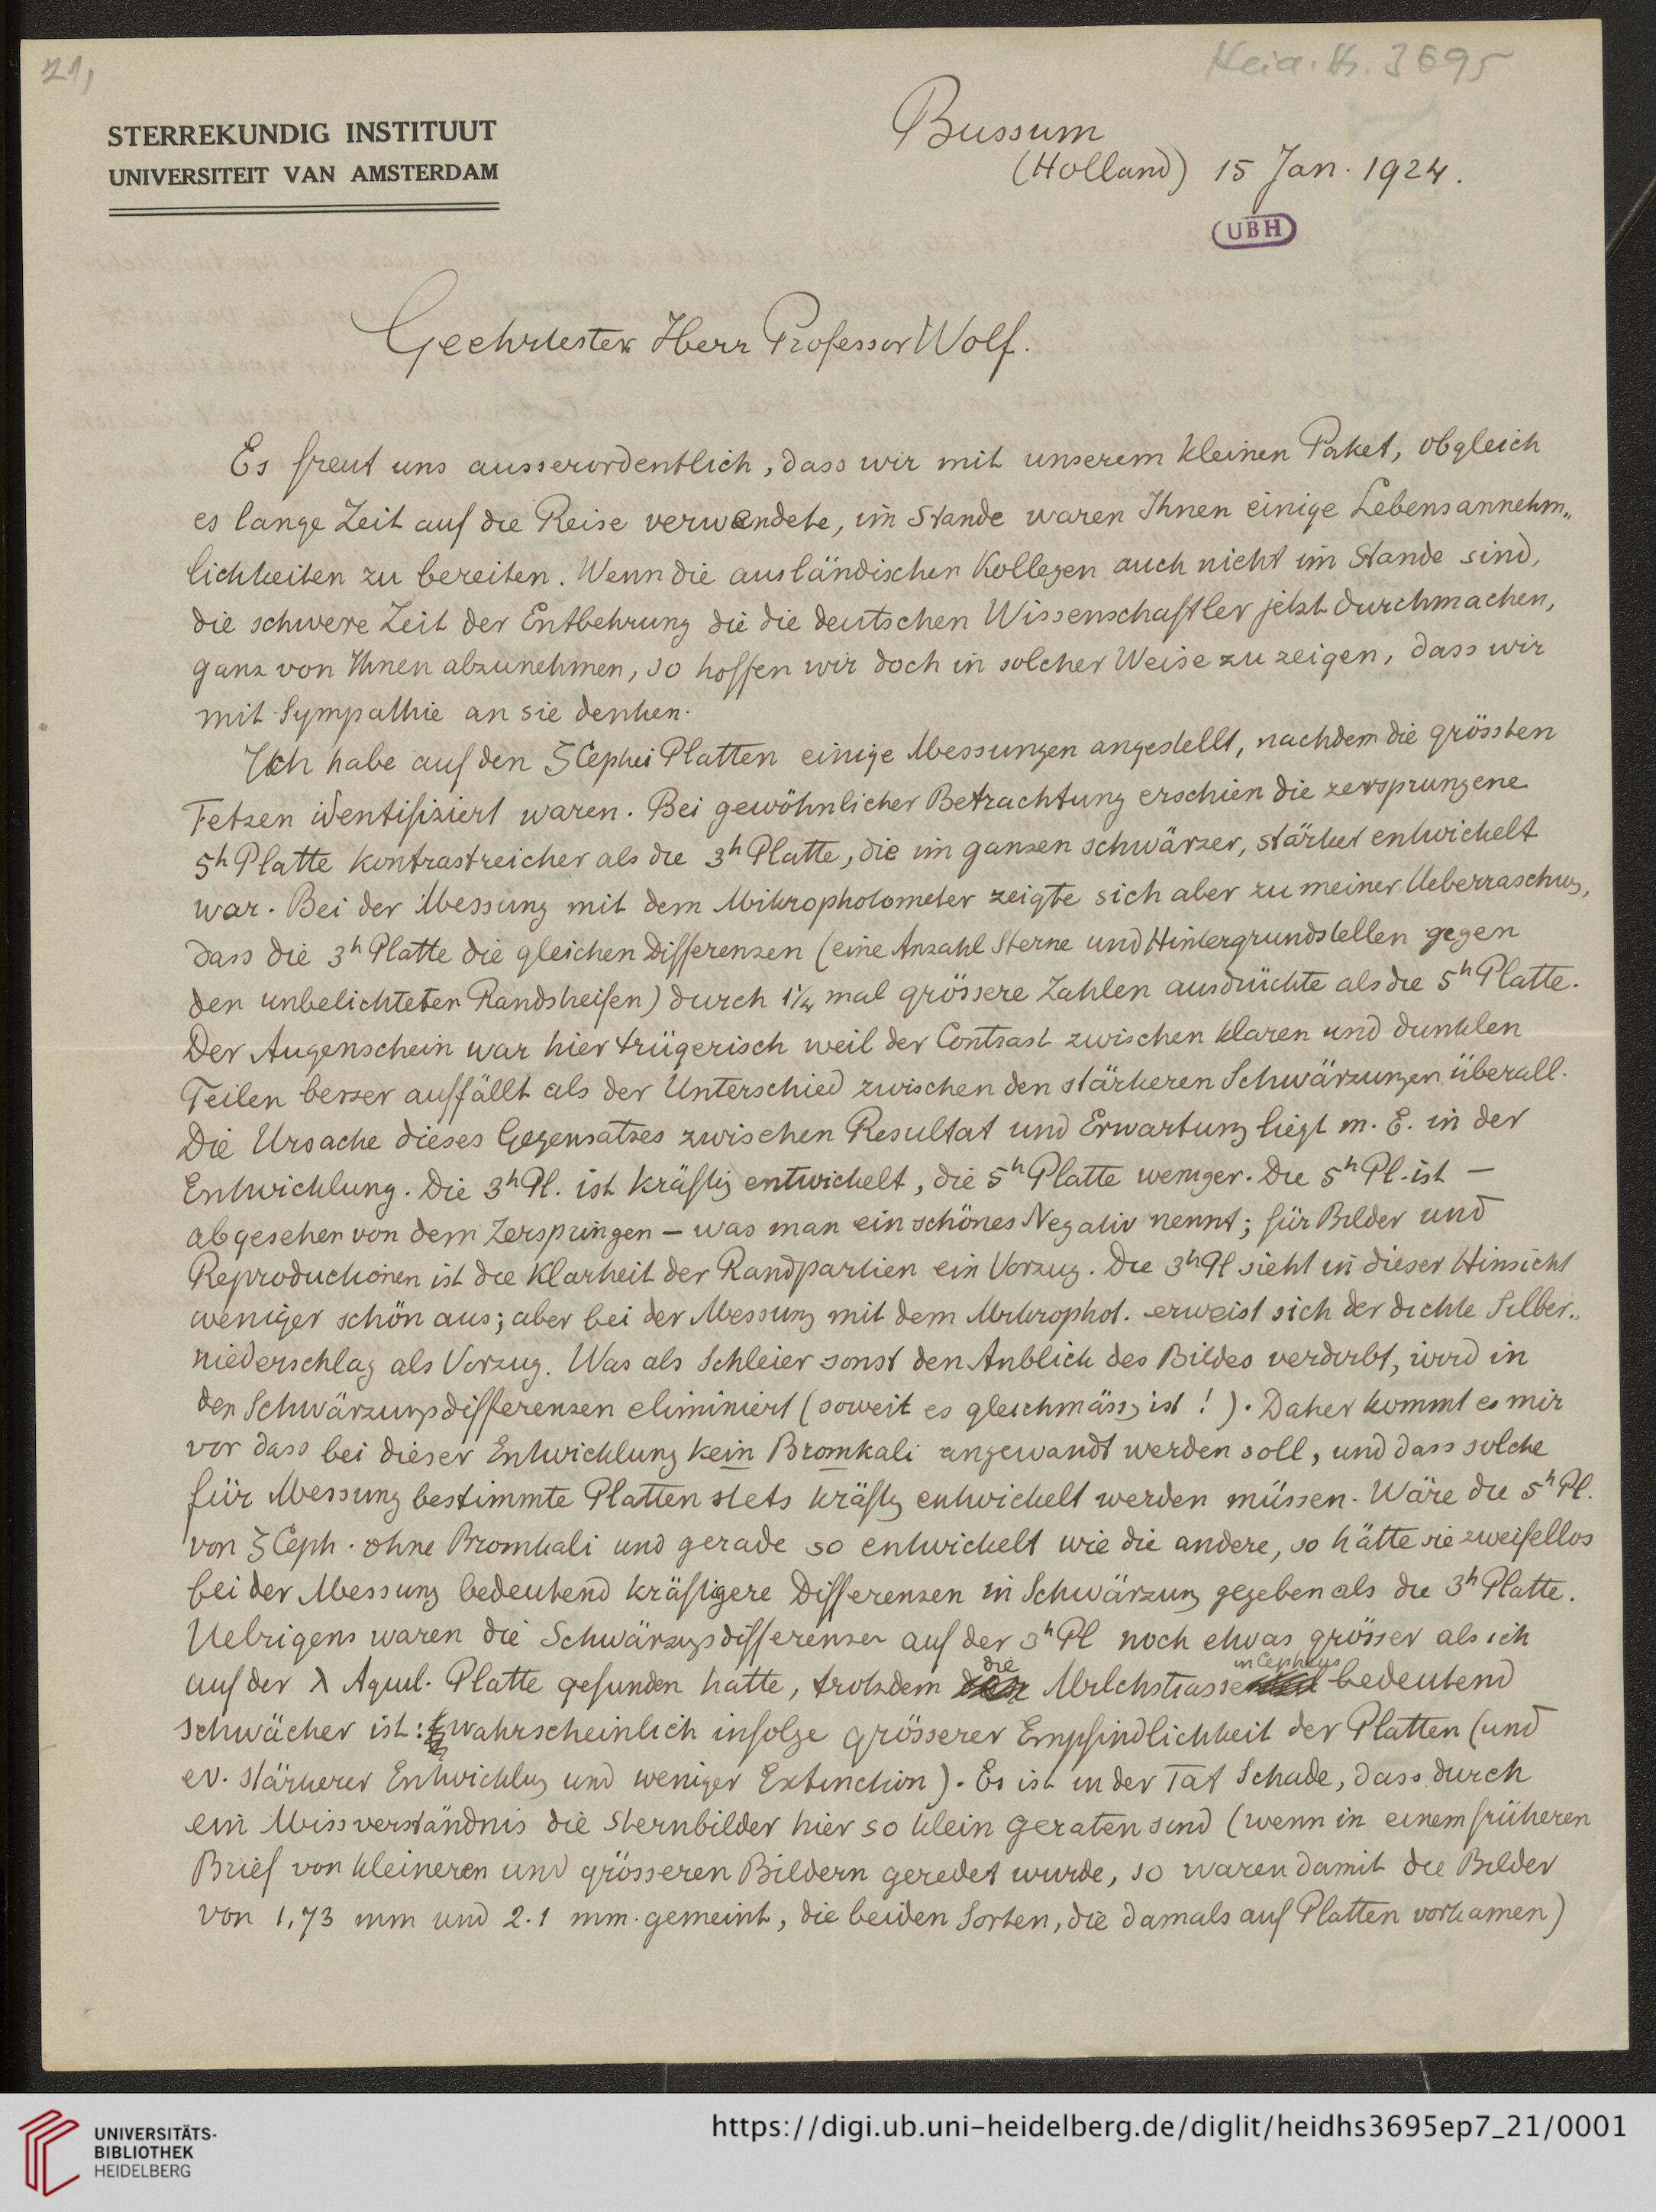 21,
Heid. Hs. 3695
STERREKUNDIG INSTITUUT
UNIVERSITEIT VAN AMSTERDAM
Bussum
(Holland) 15 Jan. 1924.
UBH
Geehrtester Herr Professor Wolf.
Es freut uns ausserordentlich, dass wir mit unserem kleinen Paket, obgleich
es lange Zeit auf die Reise verwendete, im Stande waren Ihnen einige Lebensannehm„
lichkeiten zu bereiten. Wenn die ausländischen Kollegen auch nicht im Stande sind,
die schwere Zeit der Entbehrung die die deutschen Wissenschaftler jetzt durchmachen,
ganz von Ihnen abzunehmen, so hoffen wir doch in solcher Weise zu zeigen, dass wir
mit Sympathie an sie denken.
Ich habe auf den ζ Cephei Platten einige Messungen angestellt, nachdem die grössten
Fetzen identifiziert waren. Bei gewöhnlicher Betrachtung erschien die zersprungene
5h Platte kontrastreicher als die 3h Platte, die im ganzen schwärzer, stärker entwickelt
war. Bei der Messung mit dem Mikrophotometer zeigte sich aber zu meiner Ueberraschung,
dass die 3h Platte die gleichen Differenzen (eine Anzahl Sterne und Hintergrundstellen gegen
den unbelichteten Randsheifen) durch 1¼ mal grössere Zahlen ausdrückte als die 5h Platte.
Der Augenschein war hier trügerisch weil der Contrast zwischen klaren und dunklen
Teilen besser auffällt als der Unterschied zwischen den stärkeren Schwärzungen überall.
Die Ursache dieses Gegensatzes zwischen Resultat und Erwartung liegt m. E. in der
Entwicklung. Die 3h Pl. ist kräftig entwickelt, die 5h Platte weniger. Die 5h Pl. ist —
abgesehen von dem Zerspringen — was man ein schönes Negativ nennt; für Bilder und
Reproductionen ist die Klarheit der Randpartien ein Vorzug. Die 3h Pl sieht in dieser Hinsicht
weniger schön aus; aber bei der Messung mit dem Mikrophot. erweist sich der dichte Silber„
niederschlag als Vorzug. Was als Schleier sonst den Anblick des Bildes verdirbt, wird in
den Schwärzungsdifferenzen eliminiert (soweit es gleichmässig ist!). Daher kommt es mir
vor dass bei dieser Entwicklung kein Bromkali angewandt werden soll, und dass solche
für Messung bestimmte Platten stets kräftig entwickelt werden müssen. Wäre die 5h Pl.
von ζ Ceph. ohne Bromkali und gerade so entwickelt wie die andere, so hätte sie zweifellos
bei der Messung bedeutend kräftigere Differenzen in Schwärzung gegeben als die 3h Platte.
Uebrigens waren die Schwärzungsdifferenzen auf der 3h Pl noch etwas grösser als ich
auf der λ Aquil. Platte gefunden hatte, trotzdem die Milchstrasse in Cepheus bedeutend
schwächer ist: wahrscheinlich infolge grösserer Empfindlichkeit der Platten (und
ev. stärkerer Entwicklung und weniger Extinction). Es ist in der Tat Schade, dass durch
ein Missverständnis die Sternbilder hier so klein geraten sind (wenn in einem früheren
Brief von kleineren und grösseren Bildern geredet wurde, so waren damit die Bilder
von 1,73 mm und 2.1 mm. gemeint, die beiden Sorten, die damals auf Platten vorkamen)
UNIVERSITÄTS-
BIBLIOTHEK
HEIDELBERG
https://digi.ub.uni-heidelberg.de/diglit/heidhs3695ep7_21/0001